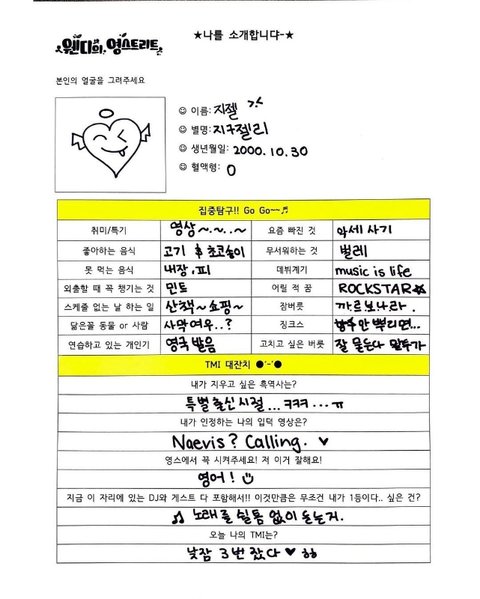 ★나를 소개합니댜-★
웬디의 영스트리트
본인의 얼굴을 그려주세요
☺ 이름: 지젤
☺ 별명: 지구젤리
☺ 생년월일: 2000. 10. 30
☺ 혈액형: O
집중탐구!! Go Go~~♬
취미/특기 영상~.~..~ 요즘 빠진 것 악세 사기
좋아하는 음식 고기 후 초코송이 무서워하는 것 벌레
못 먹는 음식 내장, 피 데뷔계기 music is life
외출할 때 꼭 챙기는 것 민트 어릴 적 꿈 ROCKSTAR☆
스케줄 없는 날 하는 일 산책~쇼핑~ 잠버릇 까르보나라.
닮은꼴 동물 or 사람 사막여우..? 징크스 안 뿌리면...
연습하고 있는 개인기 영국 발음 고치고 싶은 버릇 잘 묻는다
TMI 대잔치 ●'-'●
내가 지우고 싶은 흑역사는?
특별출신 시절... ㅋㅋㅋ... ㅠ
내가 인정하는 나의 입덕 영상은?
Naevis? Calling. ♥
영스에서 꼭 시켜주세요! 저 이거 잘해요!
영어!
지금 이 자리에 있는 DJ와 게스트 다 포함해서!! 이것만큼은 무조건 내가 1등이다.. 싶은 건?
♫ 노래를 쉴틈 없이 듣는거.
오늘 나의 TMI는?
낮잠 3번 잤다 ♥ ㅎㅎ